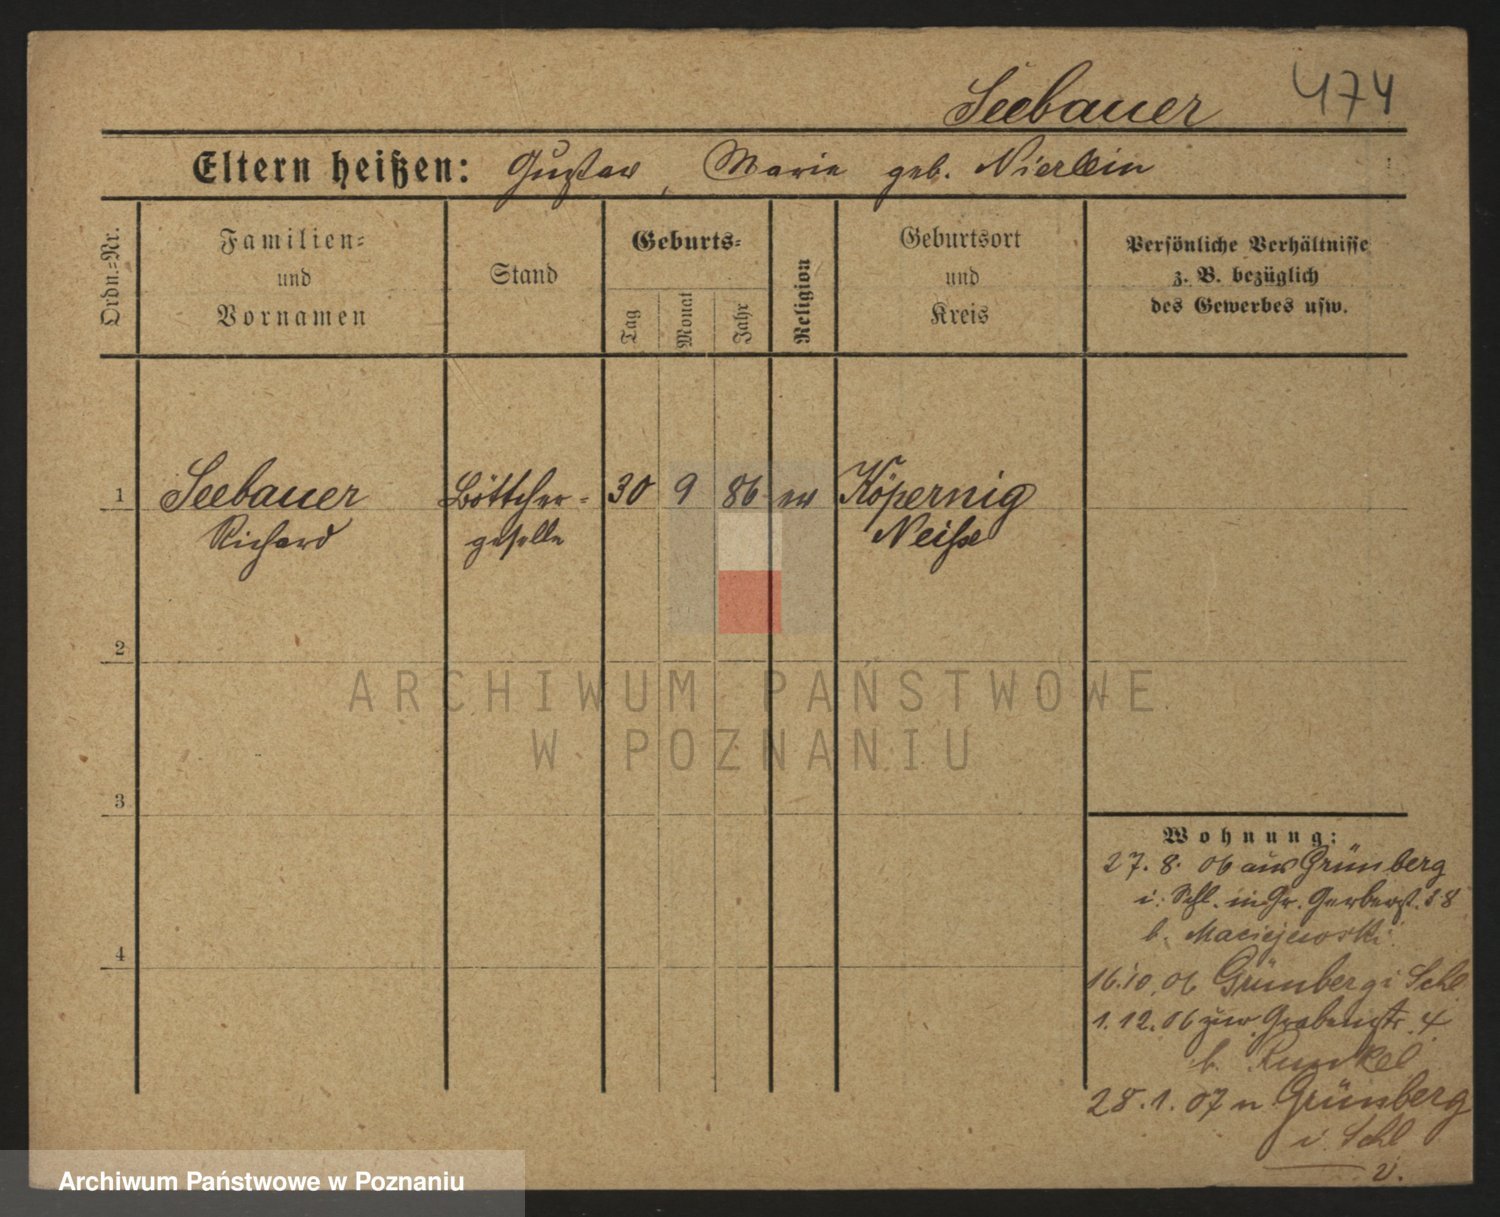 Seebauer 474
Eltern heißen: Gustav, Marie geb. Nierlein
Ordn.=Nr.
Familien=
und
Vornamen
Stand
Geburts=
Tag
Monat
Jahr
Religion
Geburtsort
und
Kreis
Persönliche Verhältnisse
z. B. bezüglich
des Gewerbes usw.
1 Seebauer Böttcher= 30 9 86 ev Köpernig
Richard geselle Neiße
2
3
4
Wohnung:
27. 8. 06 aus Grünberg
i. Schl. in Gr. Gerberst. 38
b. Maciejewski
16.10.06 Grünberg i Schl
1.12.06 zur Grabenstr. 4
b. Runkel
28.1.07 n Grünberg
i. Schl
v.
ARCHIWUM PAŃSTWOWE
W POZNANIU
Archiwum Państwowe w Poznaniu